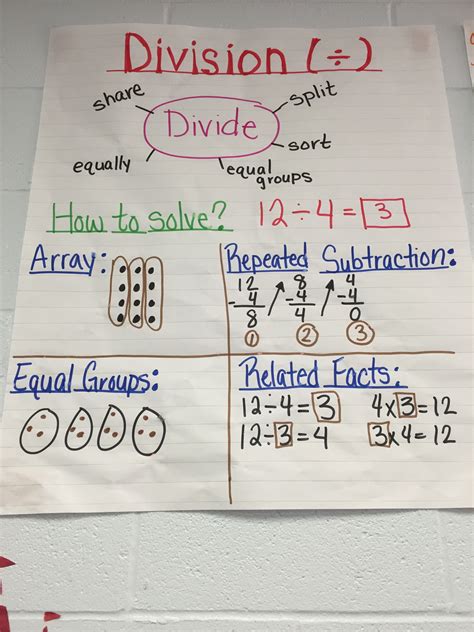 Division (÷)
share
split
Divide
sort
equally
equal
groups
How to solve? 12÷4=3
Array:
Repeated Subtraction:
12 8 4
-4 -4 -4
8 4 0
1 2 3
Equal Groups:
Related Facts:
12÷4=3 4x3=12
12÷3=4 3x4=12